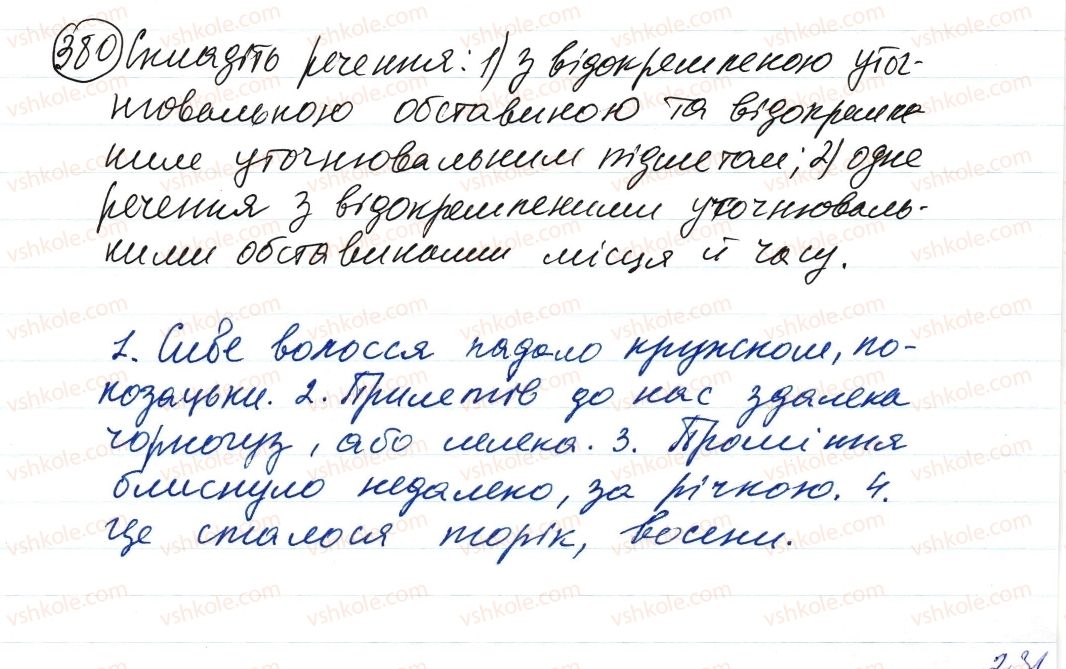 380 Складіть речення: 1) з відокремленою уточ-
нювальною обставиною та відокремле
ним уточнювальним підметом; 2) одне
речення з відокремленими уточнюваль-
ними обставинами місця й часу.
1. Сиве волосся падало кружком, по-
козацьки. 2. Прилетів до нас здалека
чорногуз, або лелека. 3. Проміння
блиснуло недалеко, за річкою. 4.
Це сталося торік, восени.
231